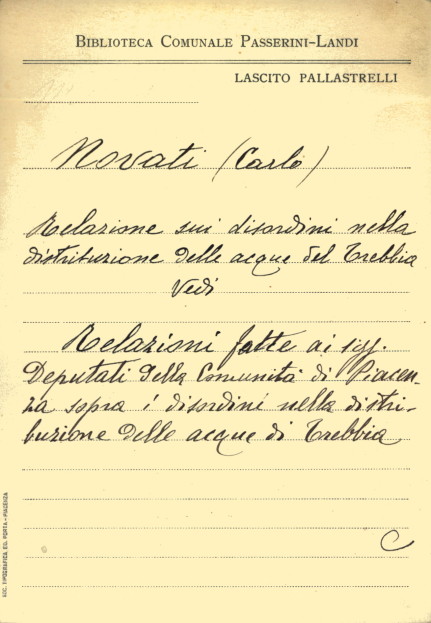 BIBLIOTECA COMUNALE PASSERINI-LANDI
LASCITO PALLASTRELLI
Novati (Carlo)
Relazione sui disordini nella
distribuzione delle acque del Trebbia
Vedi
Relazioni fatte ai sigg.
Deputati della Comunità di Piacen-
za sopra i disordini nella distri-
buzione delle acque di Trebbia
C
SOC. TIPOGRAFICA ED. PORTA - PIACENZA